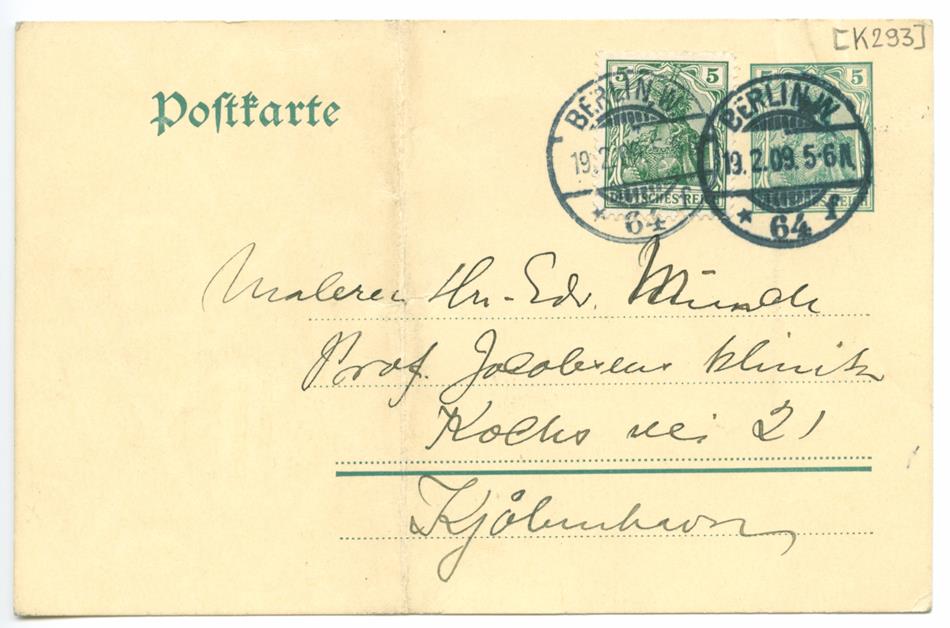 [K293]
Postkarte
5 5
DEUTSCHES REICH
5 5
BERLIN, W.
19. 2.
* 64 f
BERLIN, W.
19. 2. 09. 5-6 N.
* 64 f
Maleren Hr. Edv. Munch
Prof. Jacobsens Klinik
Kochs vei 21
Kjöbenhavn